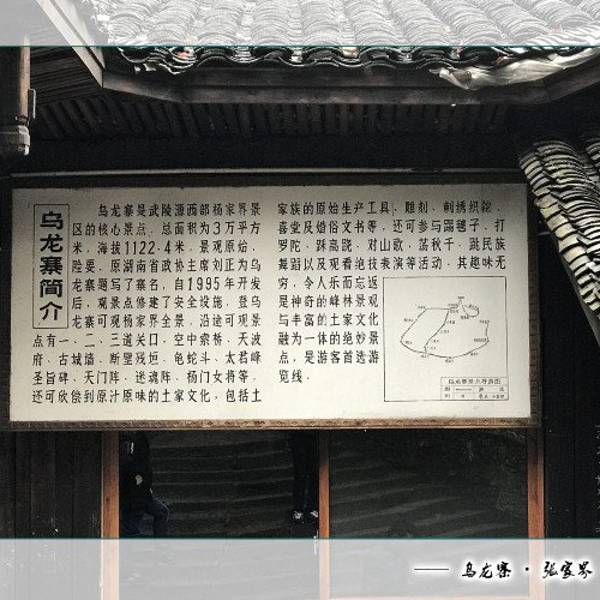 乌龙寨简介
乌龙寨是武陵源西部杨家界景
区的核心景点，总面积为3万平方
米，海拔1122.4米，景观原始，
险要，原湖南省政协主席刘正为乌
龙寨题写了寨名，自1995年开发
后，观景点修建了安全设施，登乌
龙寨可观杨家界全景，沿途可观景
点有一、二、三道关口，空中索桥、天波
府、古城墙、断壁残垣、龟蛇斗、太君峰
圣旨碑、天门阵、迷魂阵、杨门女将等，
还可欣偿到原汁原味的土家文化，包括土
家族的原始生产工具、雕刻、刺绣织锦、
喜堂及婚俗文书等，还可参与踢毽子，打
罗陀、踩高跷、对山歌、荡秋千、跳民族
舞蹈以及观看绝技表演等活动，其趣味无
穷，令人乐而忘返
是神奇的峰林景观
与丰富的土家文化
融为一体的绝妙景
点，是游客首选游
览线。
乌龙寨景点导游图
—— 乌龙寨·张家界